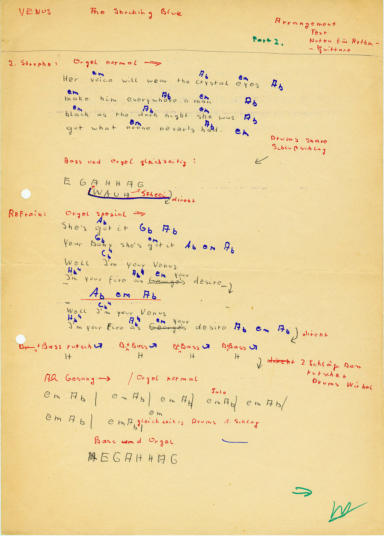 VENUS The Shocking Blue
Arrangement
Text
Noten für Rhythm-
-Guitarre
Part 2.
2. Strophe: Orgel normal →
em Ab em Ab
Her voice will wem the crystal eyes
em Ab em Ab
make him everywhere a man
em Ab em Ab
black as the dark night she was
em Ab em
got what no one
Drums snare
Schlußschlag
Bass und Orgel gleichzeitig:
E G A H H A G
(WAUH Schrei) direkt
Refrain: Orgel spezial →
Ab
She's got it Gb Ab
Gb em
Your Baby she's got it Ab em Ab
Cb4
Well I'm your Venus
Hb4 Ab4 em your
I'm your fire as desire
Ab em Ab
Cb4
Well I'm your Venus
Hb4 Ab4 em your
I'm your fire as desire Ab em Ab direkt
Bass rutsch Bass Bass Bass
H H H H
direkt 2 Schläge Bass
rutschet
Drums Wirbel
Ab Gesang → / Orgel normal
Solo
em Ab | em Ab | em Ab | em Ab | em Ab /
em Ab | em Ab gleichzeitig Drums 1. Schlag
em
Bass und Orgel
E G A H H A G